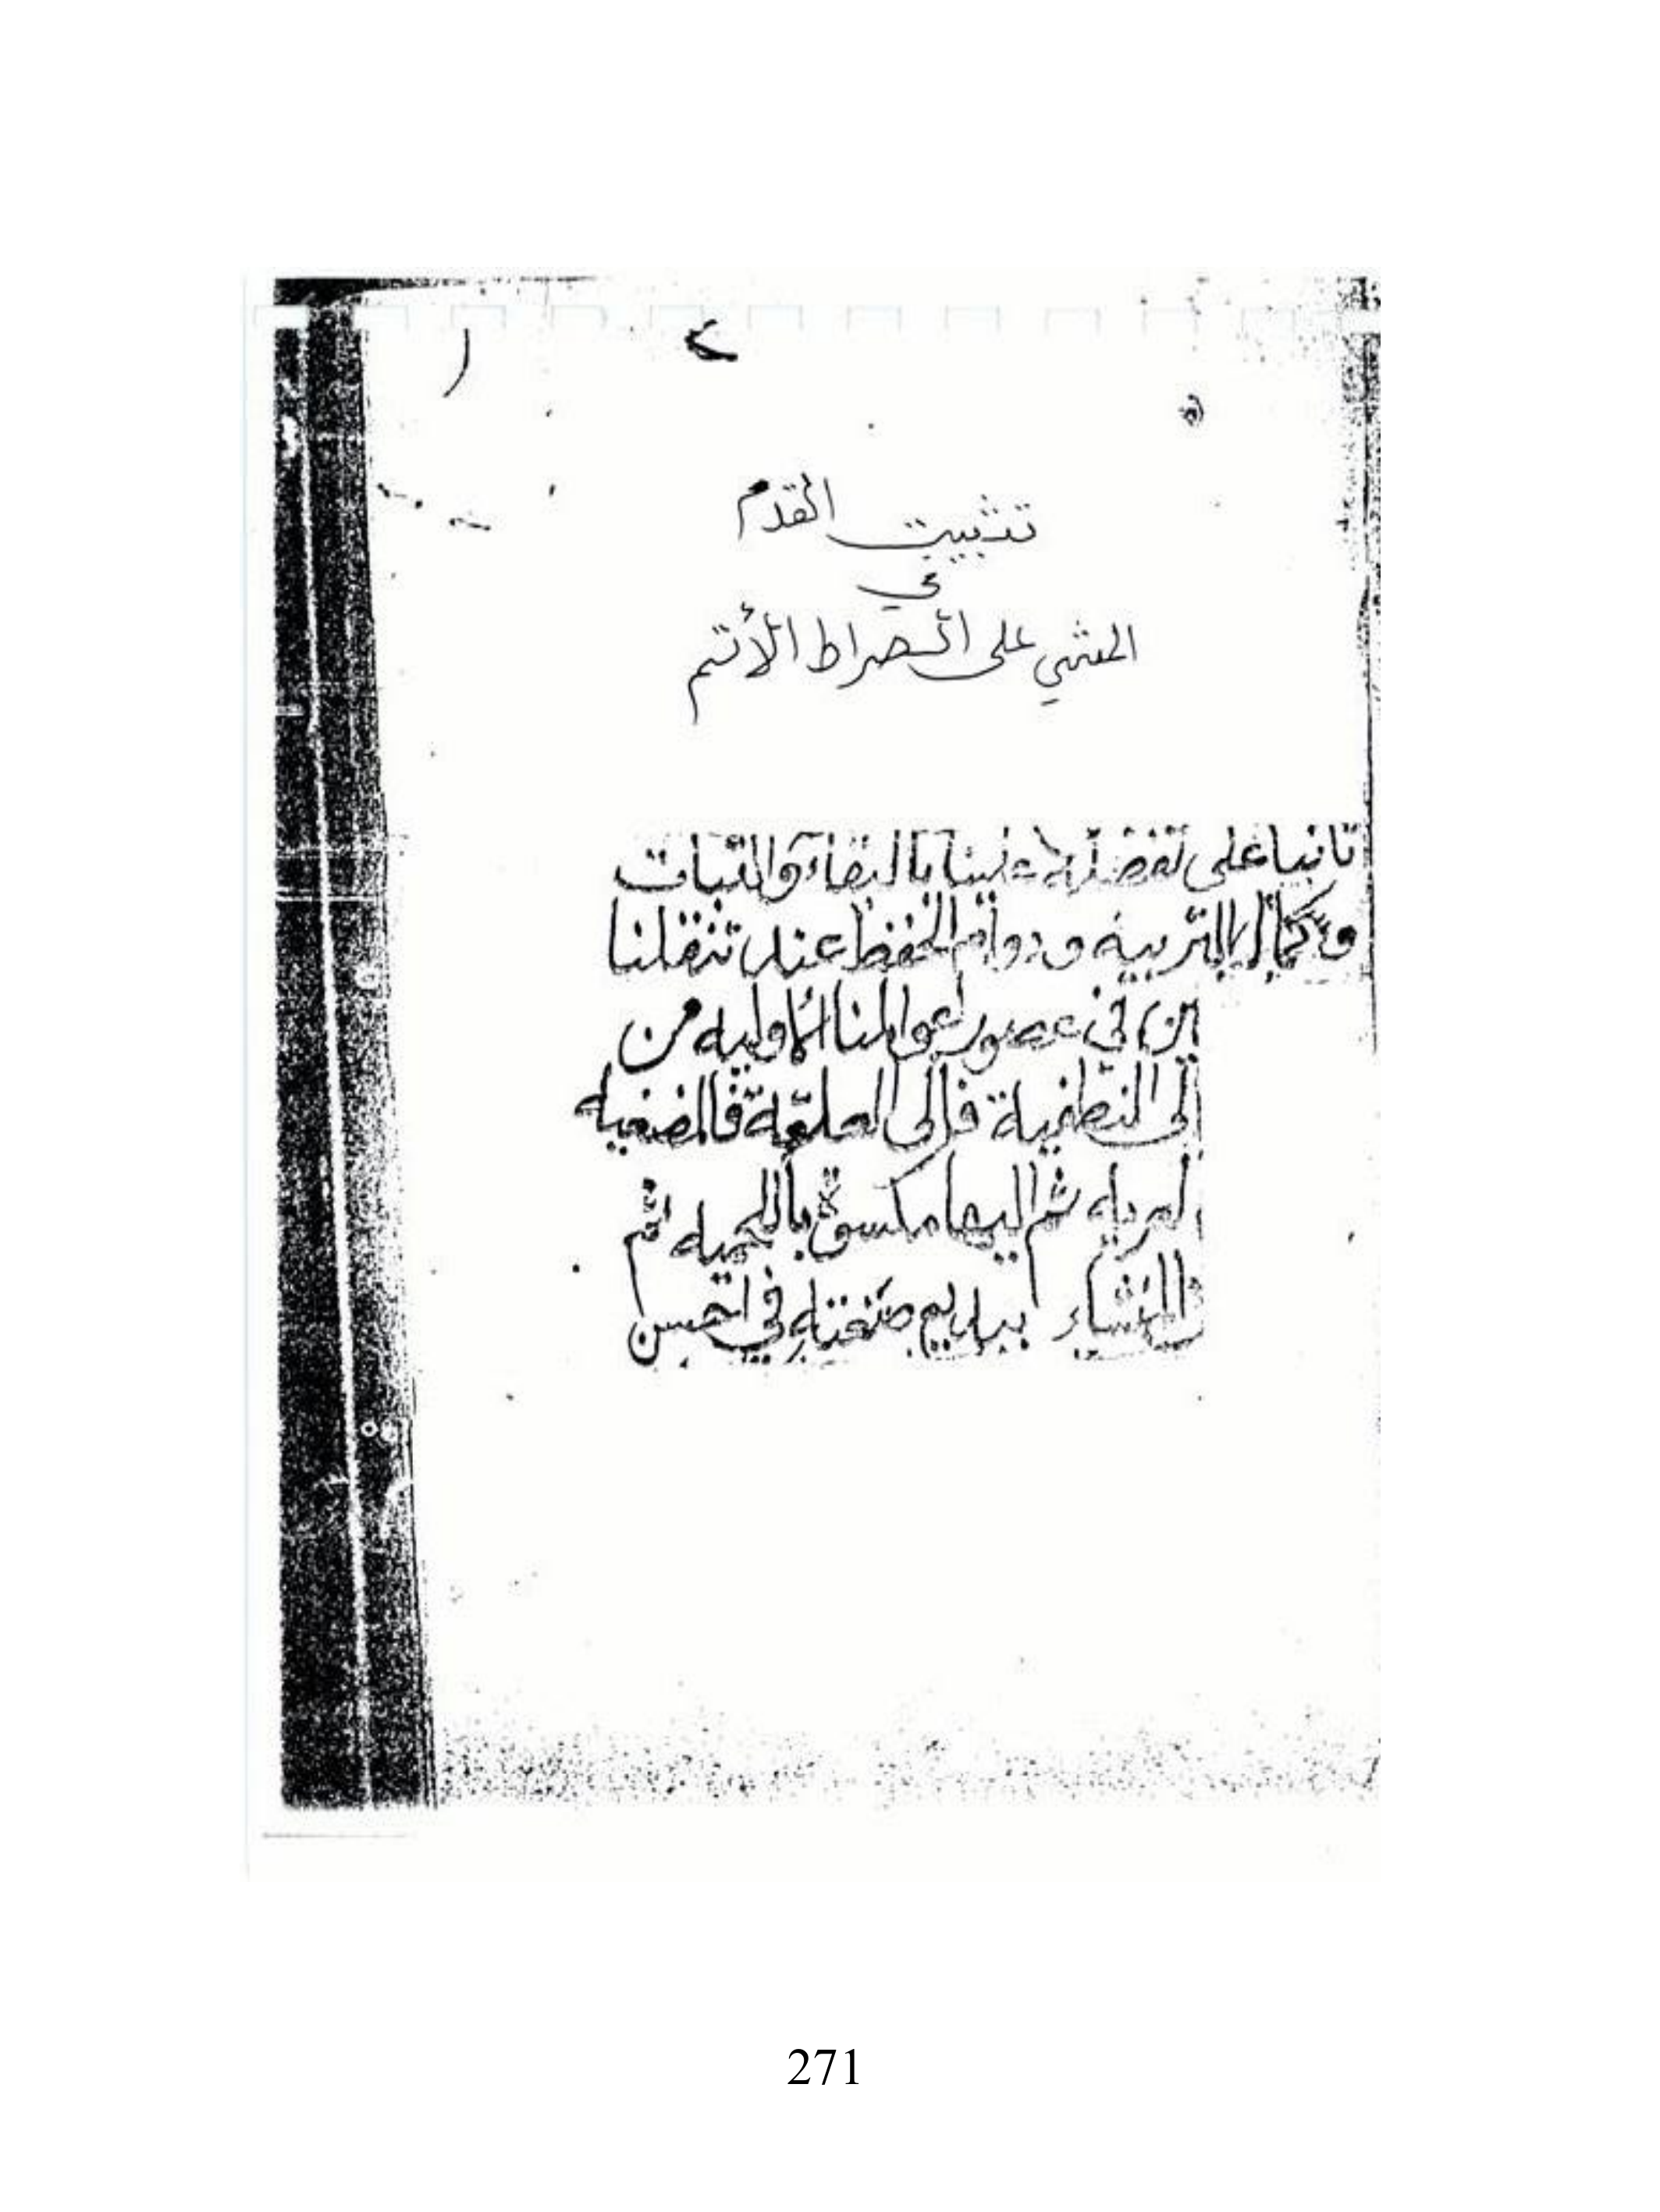 تثبيت القدم
في
المشي على الصراط الأتم
ثانيا على تفضله علينا بالبقاء والثبات
وكمال التربية ودوام الحفظ عند تنقلنا
في عصور عوالمنا الأولية من
إلى النطفية فإلى العلقة فالمضغية
ثم إليها مكسوة باللحمية ثم
ببديع صنعته في أحسن
271